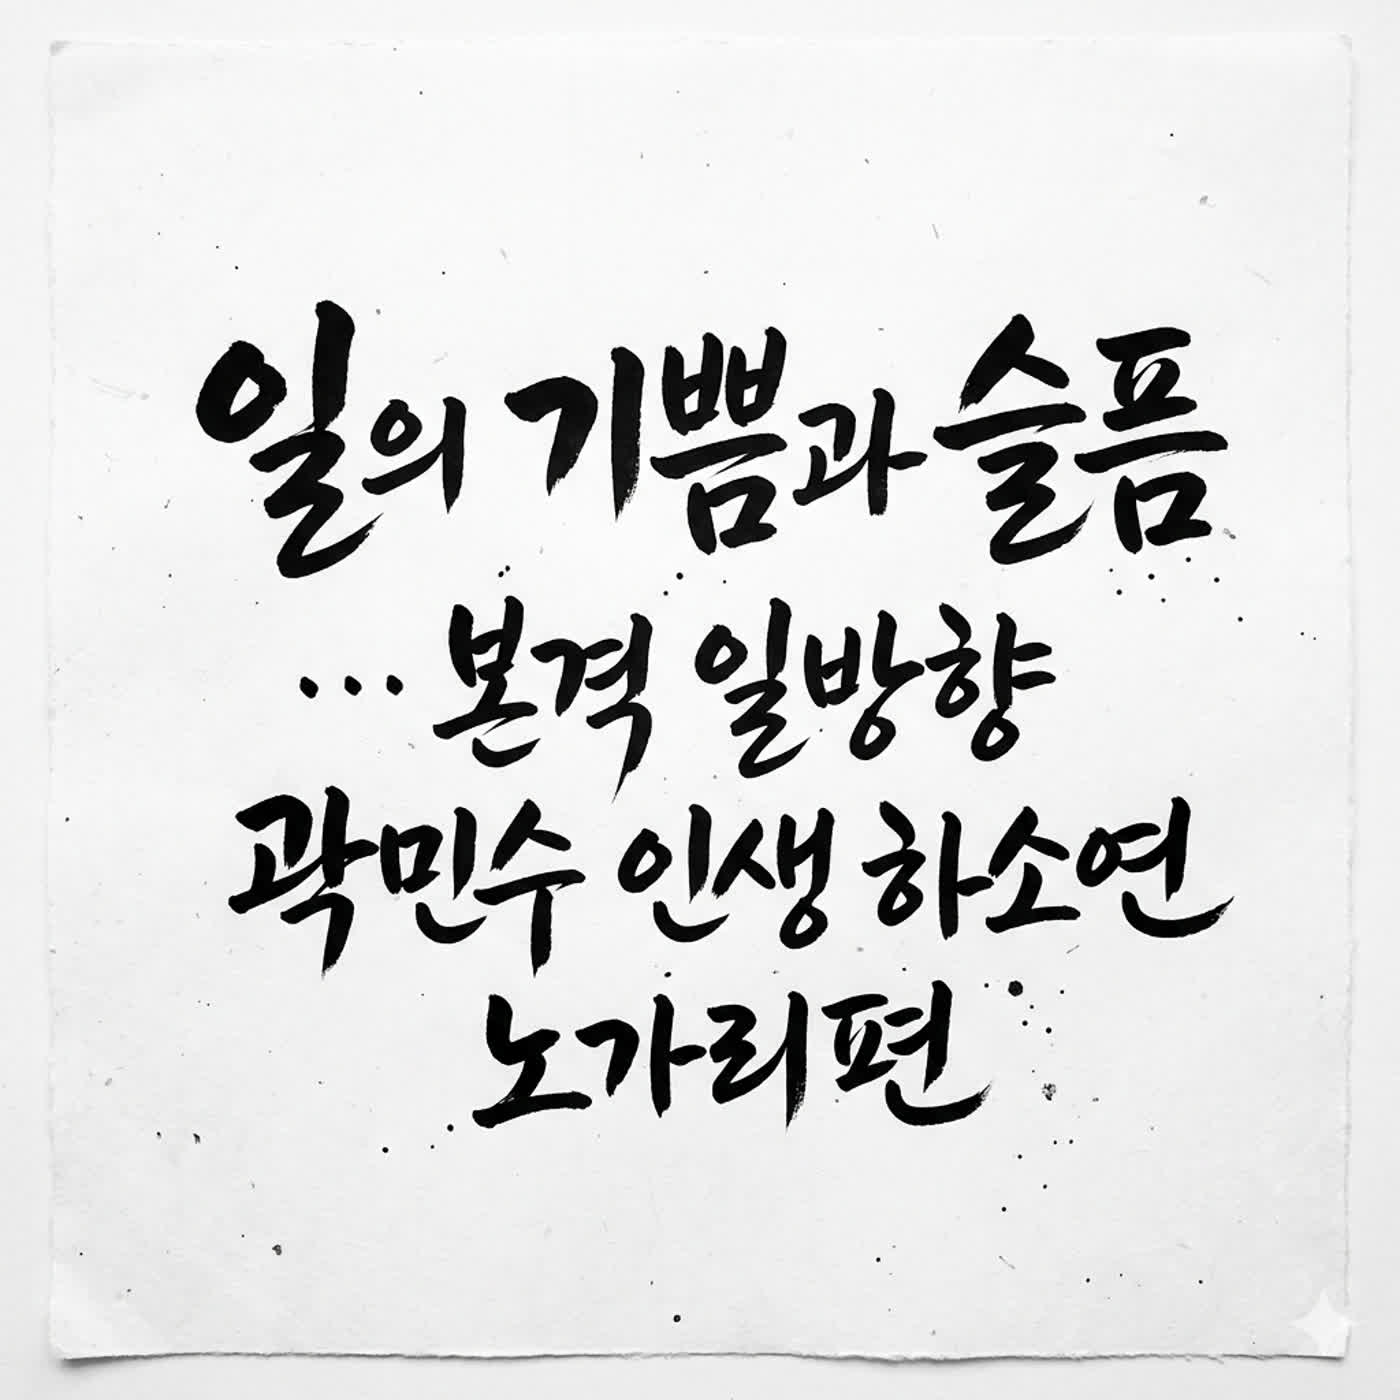 일의 기쁨과 슬픔
... 본격 일방향
곽민수 인생 하소연
노가리편